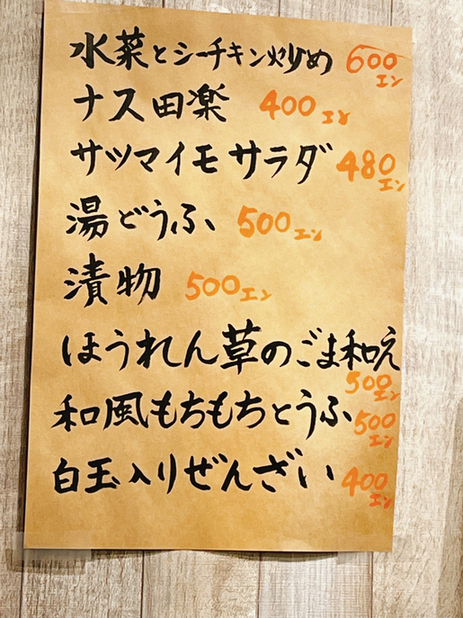 水菜とシーチキン炒め 600エン
ナス田楽 400エン
サツマイモサラダ 480エン
湯どうふ 500エン
漬物 500エン
ほうれん草のごま和え 500エン
和風もちもちとうふ 500エン
白玉入りぜんざい 400エン